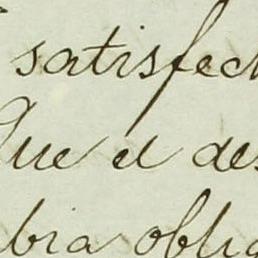 satisfec
Que el des
bia oblig